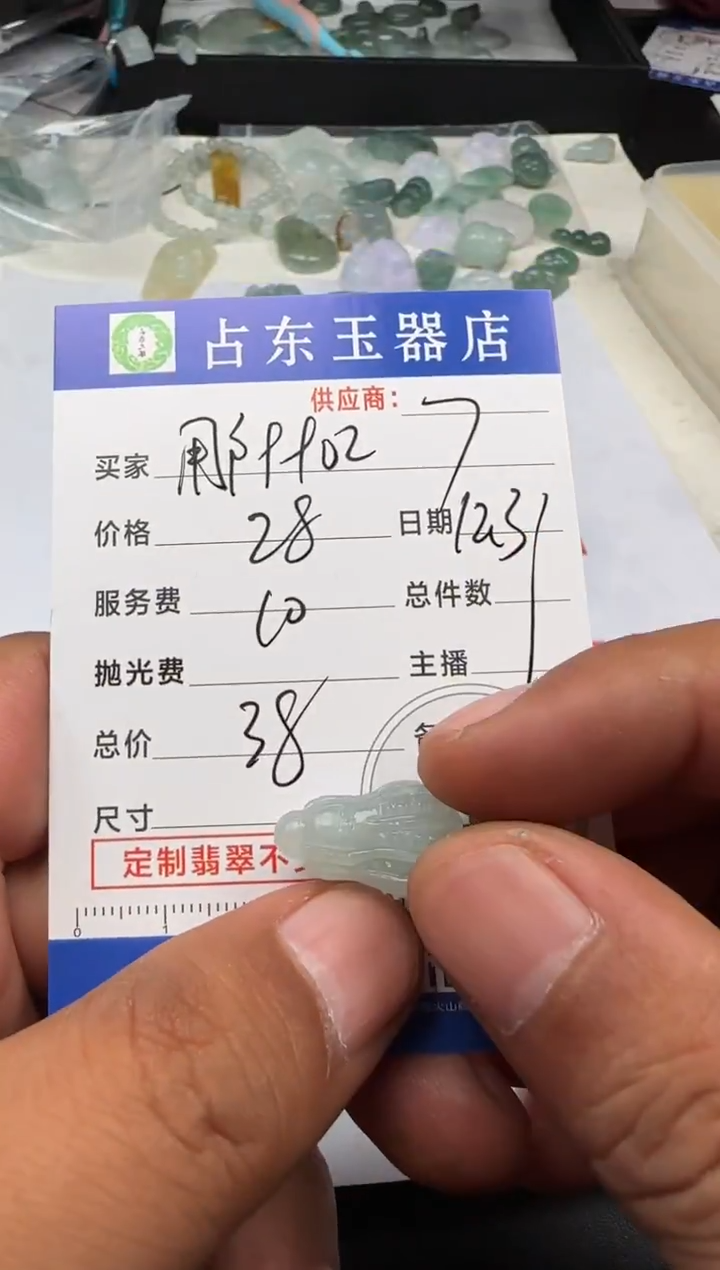 占东玉器店
供应商: 7
买家
价格 28 日期 1231
服务费 10 总件数
抛光费 主播
总价 38
尺寸
定制翡翠不
0 1